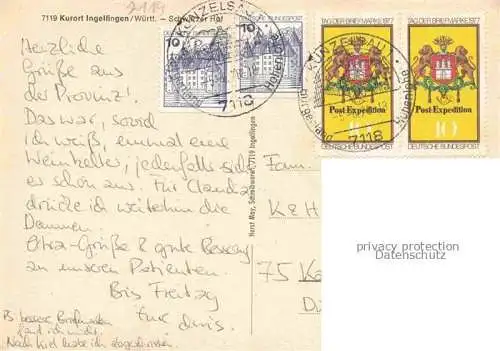 7119
7119 Kurort Ingelfingen / Württ. – Schwarzer Hof
Herzliche
Grüße aus
der Provinz!
Das war, soviel
ich weiß, einmal eine
Weinkeller, jedenfalls sieht
er schön aus. Für Claudia
drücke ich weiterhin die
Daumen.
Extra-Grüße & gute Besserung
an unseren Patienten.
Bis Freitag
Eure Chris.
PS bessere Briefmarken
fand ich nicht.
Nach Kiel habe ich abgeschlossen.
Horst May, Schreibwaren, 7119 Ingelfingen
KÜNZELSAU
7118
10
DEUTSCHE BUNDESPOST
10
DEUTSCHE BUNDESPOST
KÜNZELSAU
7118
TAG DER BRIEFMARKE 1977
Post Expedition
10
DEUTSCHE BUNDESPOST
TAG DER BRIEFMARKE 1977
Post Expedition
10
DEUTSCHE BUNDESPOST
Fam.
KEH
75 Ka
privacy protection
Datenschutz